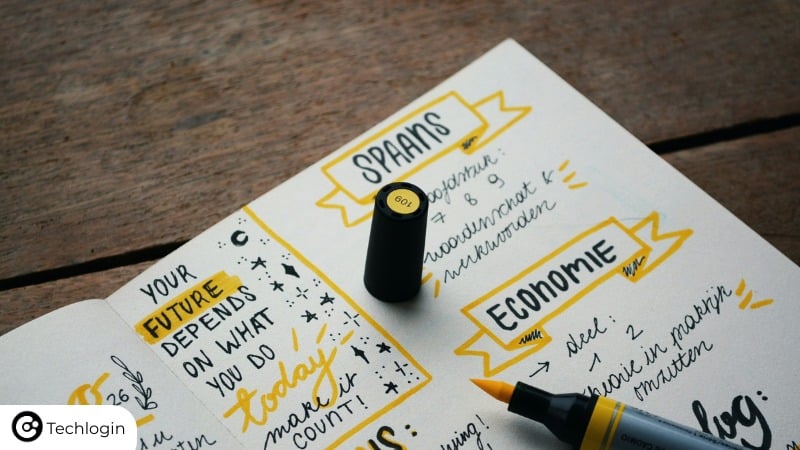 YOUR
FUTURE
DEPENDS
ON WHAT
YOU DO
today
make it
COUNT!
26
SPAANS
7 8 9
woordenschat &
werkwoorden
ECONOMIE
→ deel:
1 2
in praktijk
omzetten
109
Techlogin